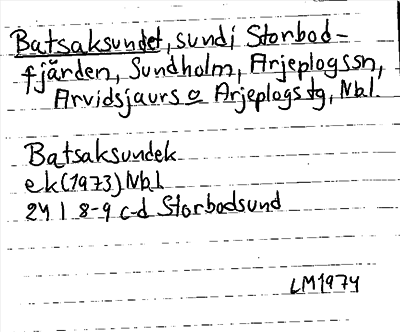 Batsaksundet, sund i Storbod-
fjärden, Sundholm, Arjeplogssn,
Arvidsjaurs o Arjeplogs tg, Nbl.
Batsaksundek
ek (1973) Nbl
24 I 8-9 c-d Storbodsund
LM1974